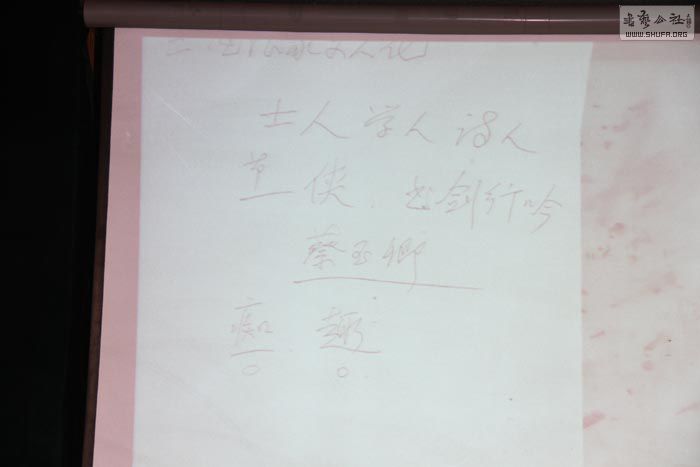 书艺公社
WWW.SHUFA.ORG
文人化
士人 学人 诗人
侠 . 书剑行吟
蔡玉卿
痴 趣